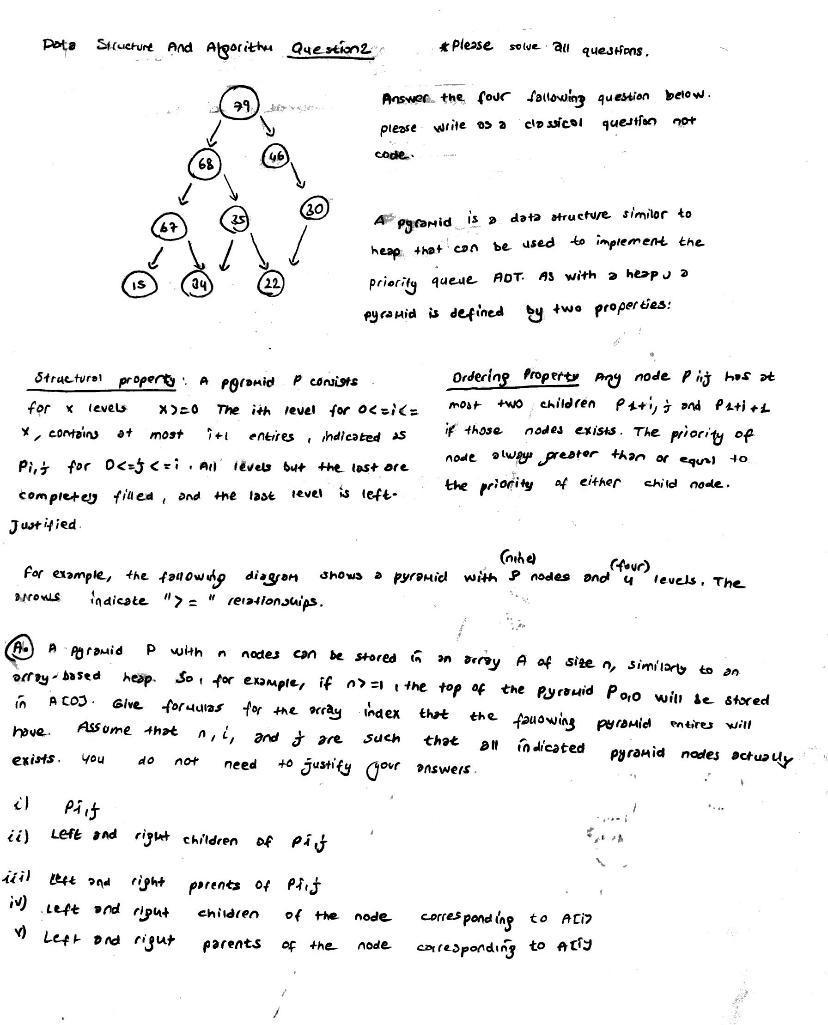 Data Structure And Algorithm Question2 *Please solve all questions.
79
68
46
67
35
30
15
34
22
Answer the four fallowing question below.
please write as a classical question not
code.
A pyramid is a data structure similar to
heap that can be used to implement the
priority queue ADT. AS with a heap, a
pyramid is defined by two properties:
Structural property: A pyramid P consists
for x levels x>=0 The ith level for 0<=i<=
x, contains at most i+1 entires, indicated as
Pi,j for 0<=j<=i. All levels but the last are
completely filled, and the last level is left-
Justified.
Ordering Property Any node Pi,j has at
most two children P1+i,j and P1+i+1
if those nodes exists. The priority of
node always greater than or equal to
the priority of either child node.
(nihe) (four)
For example, the fallowing diagram shows a pyramid with 9 nodes and 4 levels. The
arrows indicate ">=" relationships.
A. A pyramid P with n nodes can be stored in an array A of size n, similarly to an
array-based heap. So, for example, if n>=1, the top of the pyramid P0,0 will be stored
in A[0]. Give formulas for the array index that the fallowing pyramid entires will
have. Assume that n, i, and j are such that all indicated pyramid nodes actually
exists. you do not need to justify your answers.
i) Pi,j
ii) Left and right children of Pi,j
iii) Left and right parents of Pi,j
iv) Left and right children of the node corresponding to A[i]?
v) Left and right parents of the node corresponding to A[i]?